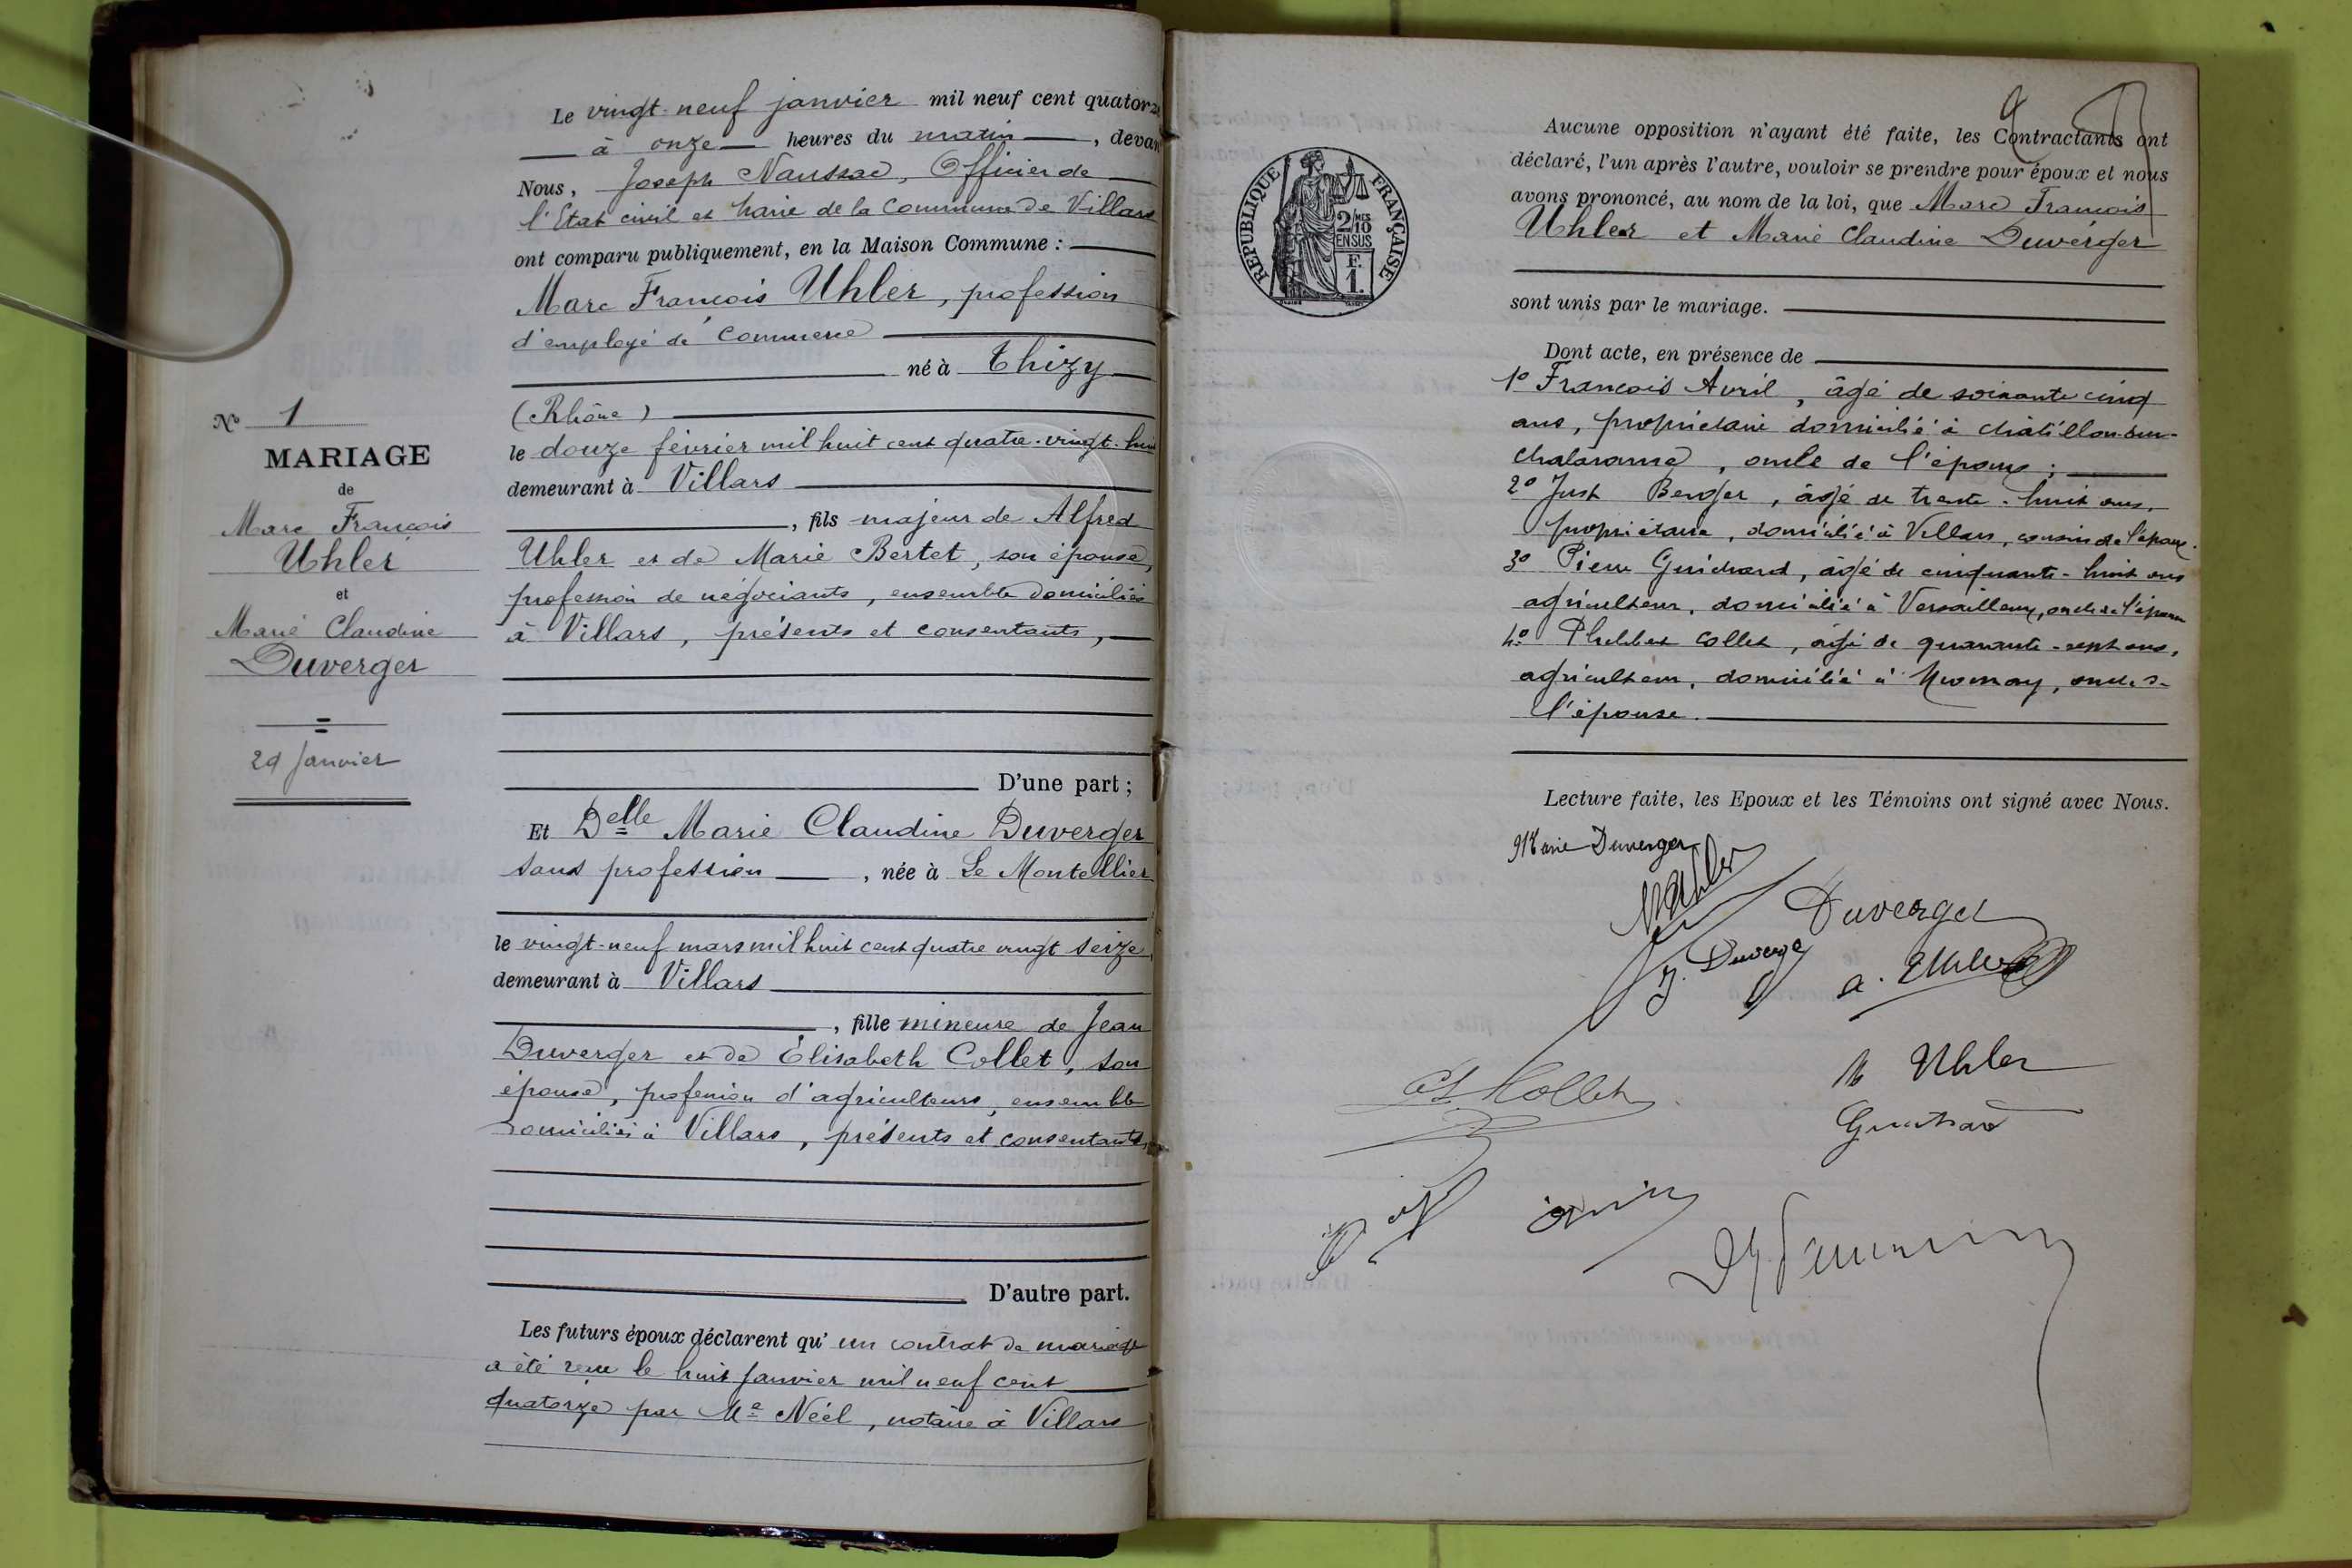 Le vingt-neuf janvier mil neuf cent quatorze
à onze heures du matin, devan
Nous, Joseph Naussac, Officier de
l'Etat civil et Maire de la Commune de Villars
ont comparu publiquement, en la Maison Commune :
Marc François Uhler, profession
d'employé de Commerce
né à Thizy
(Rhône)
le douze février mil huit cent quatre-vingt-huit
demeurant à Villars
, fils majeur de Alfred
Uhler et de Marie Bertet, son épouse,
profession de négociants, ensemble domiciliés
à Villars, présents et consentants,
D'une part ;
Et Delle Marie Claudine Duverger
sans profession, née à Le Montellier
le vingt-neuf mars mil huit cent quatre vingt seize,
demeurant à Villars
, fille mineure de Jean
Duverger et de Élisabeth Collet, son
épouse, profession d'agriculteurs, ensemble
domiciliés à Villars, présents et consentants,
D'autre part.
Les futurs époux déclarent qu'un contrat de mariage
a été reçu le huit Janvier mil neuf cent
quatorze par Me Néel, notaire à Villars
No 1
MARIAGE
de
Marc François
Uhler
et
Marie Claudine
Duverger
29 Janvier
2
RÉPUBLIQUE FRANÇAISE
2/10
MES
EN SUS
F.
1.
Aucune opposition n'ayant été faite, les Contractants ont
déclaré, l'un après l'autre, vouloir se prendre pour époux et nous
avons prononcé, au nom de la loi, que Marc François
Uhler et Marie Claudine Duverger
sont unis par le mariage.
Dont acte, en présence de
1o François Avril, âgé de soixante cinq
ans, propriétaire domicilié à Châtillon-sur-
Chalaronne, oncle de l'époux ;
2o Just Berger, âgé de trente-huit ans,
propriétaire, domicilié à Villars, cousin de l'époux.
3o Pierre Guichard, âgé de cinquante-huit ans
agriculteur, domicilié à Versailleux, oncle de l'épouse
4o Philibert Collet, âgé de quarante-sept ans,
agriculteur, domicilié à Mionnay, oncle de
l'épouse.
Lecture faite, les Epoux et les Témoins ont signé avec Nous.
Marie Duverger
M Uhler
Duverger
J. Duverge
a. Uhler
M Uhler
Collet
Guichard